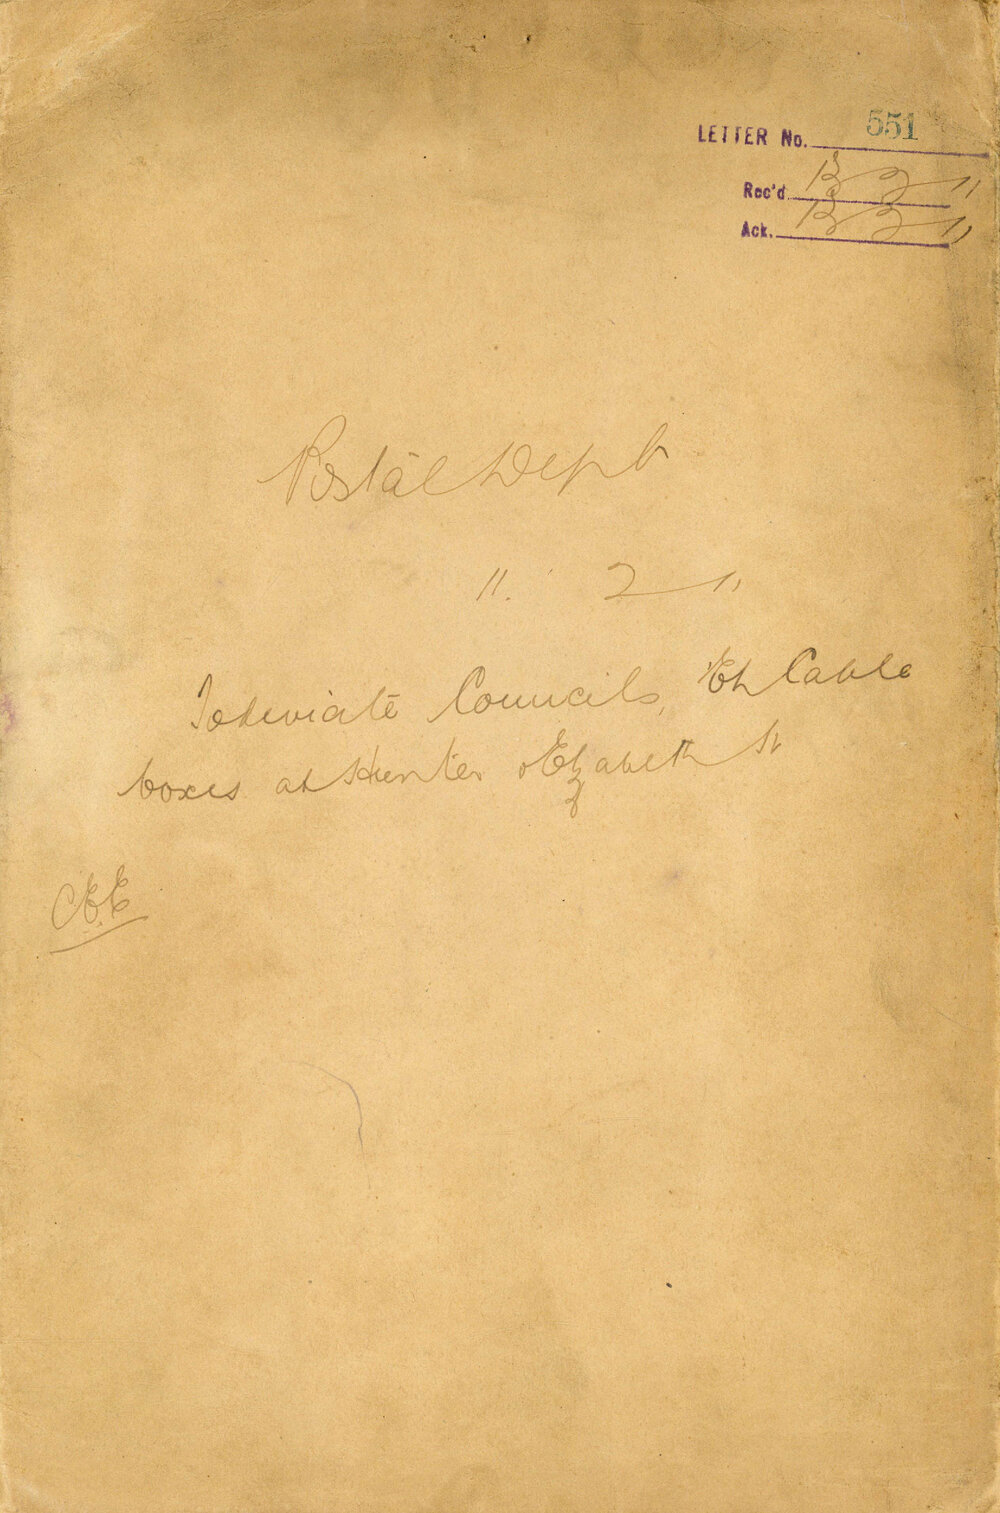 LETTER No. 551
Rec'd 13 2 11
Ack. 13 2 11
Postal Dept
11. 2 11
To deviate Councils, Eh Cable
boxes at Hunter & Elizabeth St
C.E.E